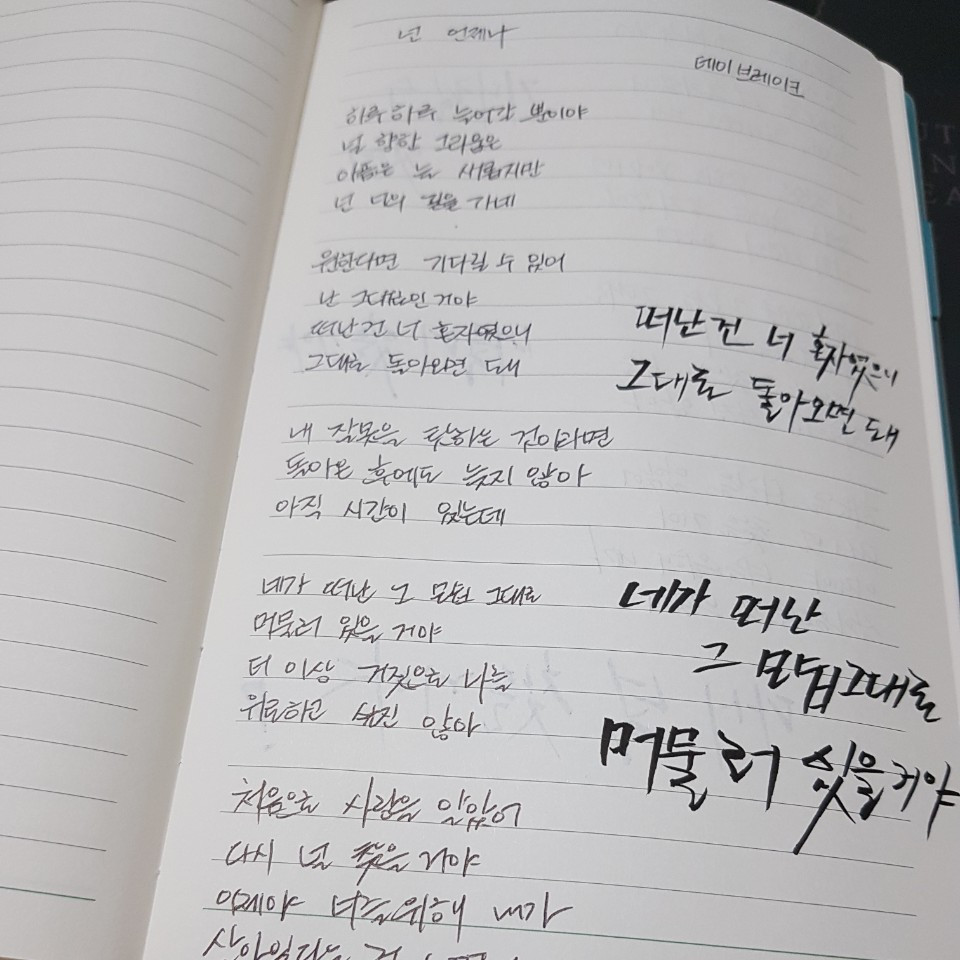 넌 언제나
데이브레이크
하루하루 늦어갈 뿐이야
널 향한 그리움은
아픔은 늘 새롭지만
넌 너의 길을 가네
원한다면 기다릴 수 있어
난 그대로인거야
떠난건 너 혼자였으니
그대로 돌아오면 돼
떠난건 너 혼자였으니
그대로 돌아오면 돼
내 잘못을 탓하는 것이라면
돌아온 후에도 늦지 않아
아직 시간이 있는데
네가 떠난 그 모습 그대로
머물러 있을 거야
더 이상 거짓으로 나를
위로하고 싶진 않아
네가 떠난
그 모습 그대로
머물러 있을거야
처음으로 사랑을 알았어
다시 널 찾을 거야
이제야 너를 위해 내가